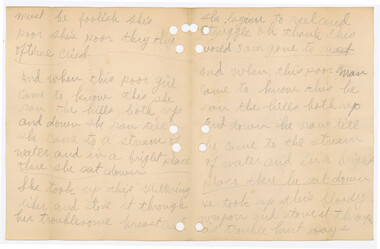 must be foolish she's
poor she's poor they
often cried
And when this poor girl
came to know this she
ran the hills both up
and down she ran till
she came to a stream of
water and in a bright place
there she sat down
She took up this
and it through
her troublesome breast
she began to reel and
struggle oh thank this
world I am gone to rest
And when this poor man
came to know this he
ran the hills both up
and down he ran till
he came to the stream
of water and in a bright
place there he sat down
He took up this bloody
weapon and it through